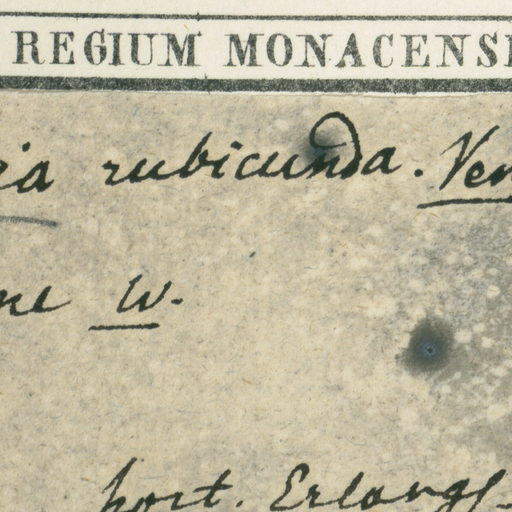 REGIUM MONACENS
ia rubicunda. Ven
ne W.
hort. Erlang